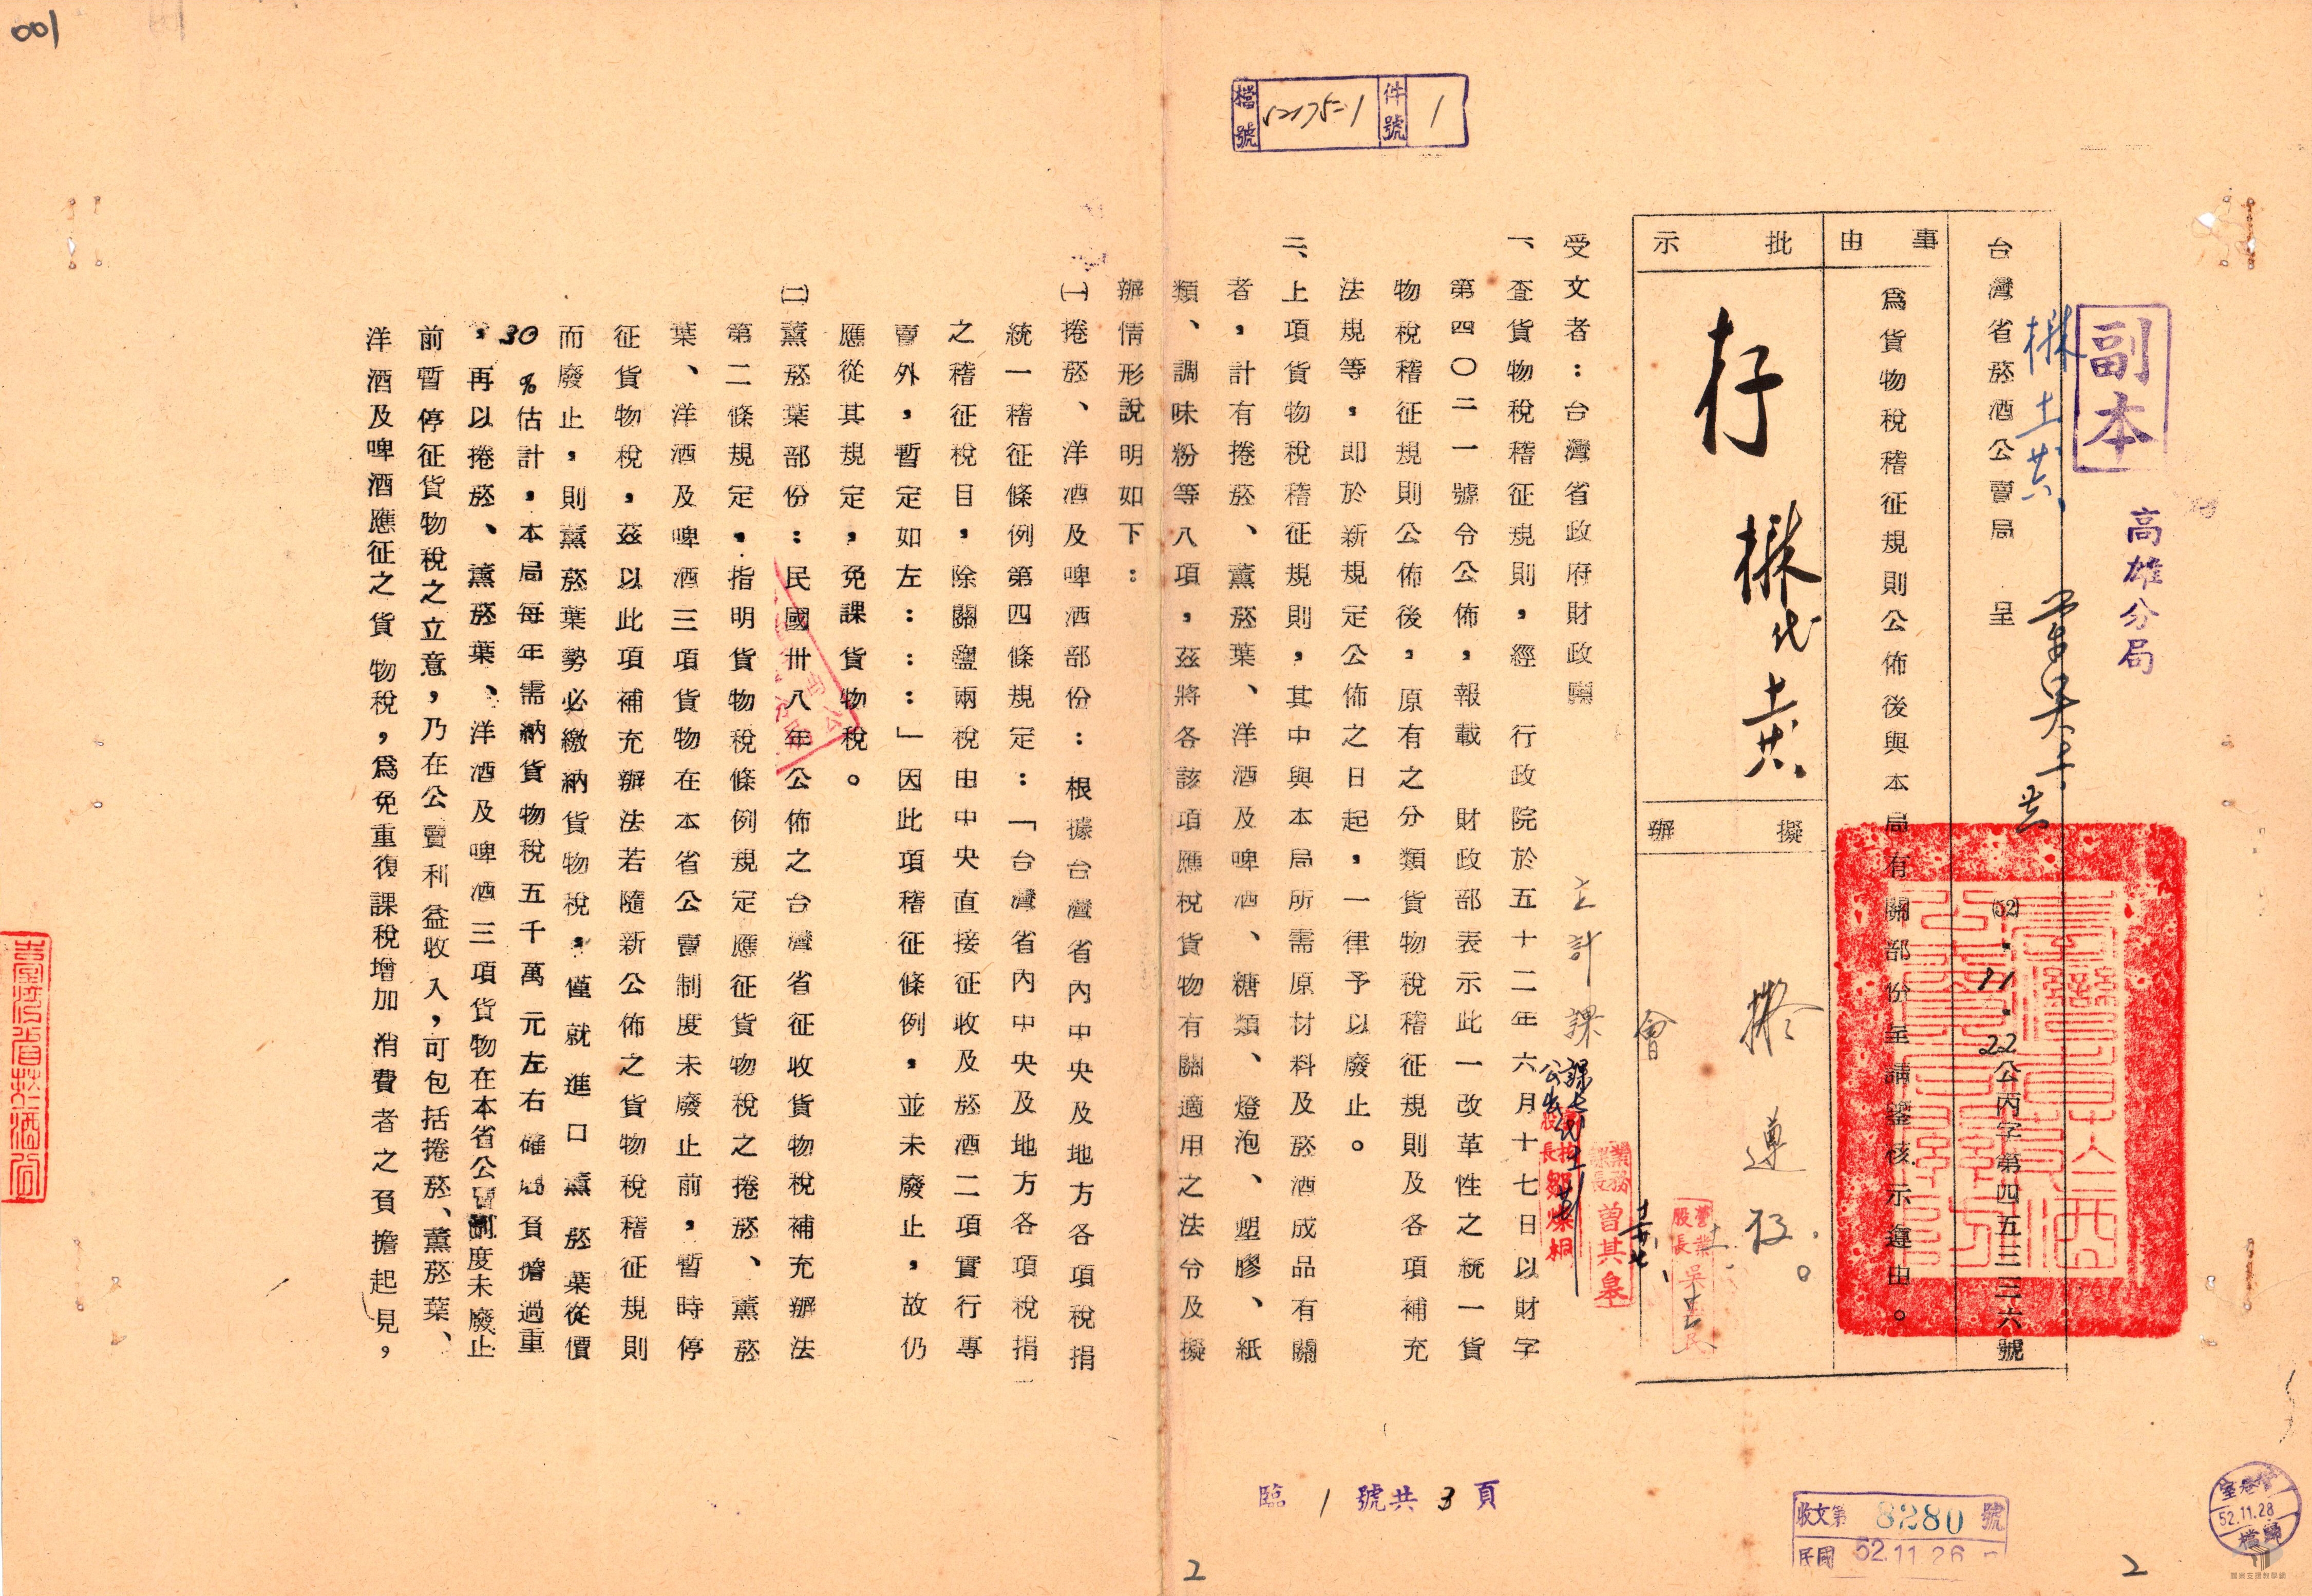 001
檔號 52175=1 件號 1
副本
高雄分局
台灣省菸酒公賣局 呈
(52).11.22公丙字第四五三三六號
事由
為貨物稅稽征規則公佈後與本局有關部份呈請鑒核示遵由。
批示
存
擬辦
擬
遵
會
主計課
受文者：台灣省政府財政廳
一、查貨物稅稽征規則，經　行政院於五十二年六月十七日以財字
第四〇二一號令公佈，報載　財政部表示此一改革性之統一貨
物稅稽征規則公佈後，原有之分類貨物稅稽征規則及各項補充
法規等，即於新規定公佈之日起，一律予以廢止。
二、上項貨物稅稽征規則，其中與本局所需原材料及菸酒成品有關
者，計有捲菸、薰菸葉、洋酒及啤酒、糖類、燈泡、塑膠、紙
類、調味粉等八項，茲將各該項應稅貨物有關適用之法令及擬
辦情形說明如下：
(一)捲菸、洋酒及啤酒部份：根據台灣省內中央及地方各項稅捐
統一稽征條例第四條規定：「台灣省內中央及地方各項稅捐
之稽征稅目，除關鹽兩稅由中央直接征收及菸酒二項實行專
賣外，暫定如左：：：」因此項稽征條例，並未廢止，故仍
應從其規定，免課貨物稅。
(二)薰菸葉部份：民國卅八年公佈之台灣省征收貨物稅補充辦法
第二條規定，指明貨物稅條例規定應征貨物稅之捲菸、薰菸
葉、洋酒及啤酒三項貨物在本省公賣制度未廢止前，暫時停
征貨物稅，茲以此項補充辦法若隨新公佈之貨物稅稽征規則
而廢止，則薰菸葉勢必繳納貨物稅，僅就進口薰菸葉從價
30%估計，本局每年需納貨物稅五千萬元左右確屬負擔過重
，再以捲菸、薰菸葉、洋酒及啤酒三項貨物在本省公賣制度未廢止
前暫停征貨物稅之立意，乃在公賣利益收入，可包括捲菸、薰菸葉、
洋酒及啤酒應征之貨物稅，為免重復課稅增加消費者之負擔起見，
業務課長 曾其
營業股長
臨 1 號共 3 頁
收文第 8280 號
民國 52.11.26
52.11.28
歸檔
2
2
國家文檔教學網